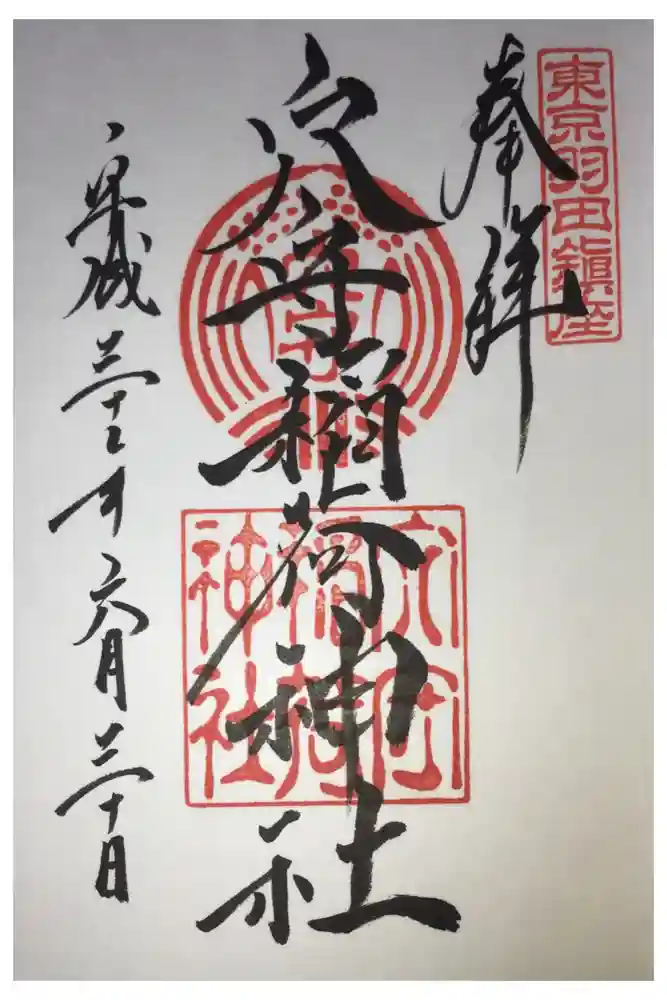 東京羽田鎮座
奉拝
穴守稲荷神社
穴守
稲荷
神社
平成三十年六月三十日